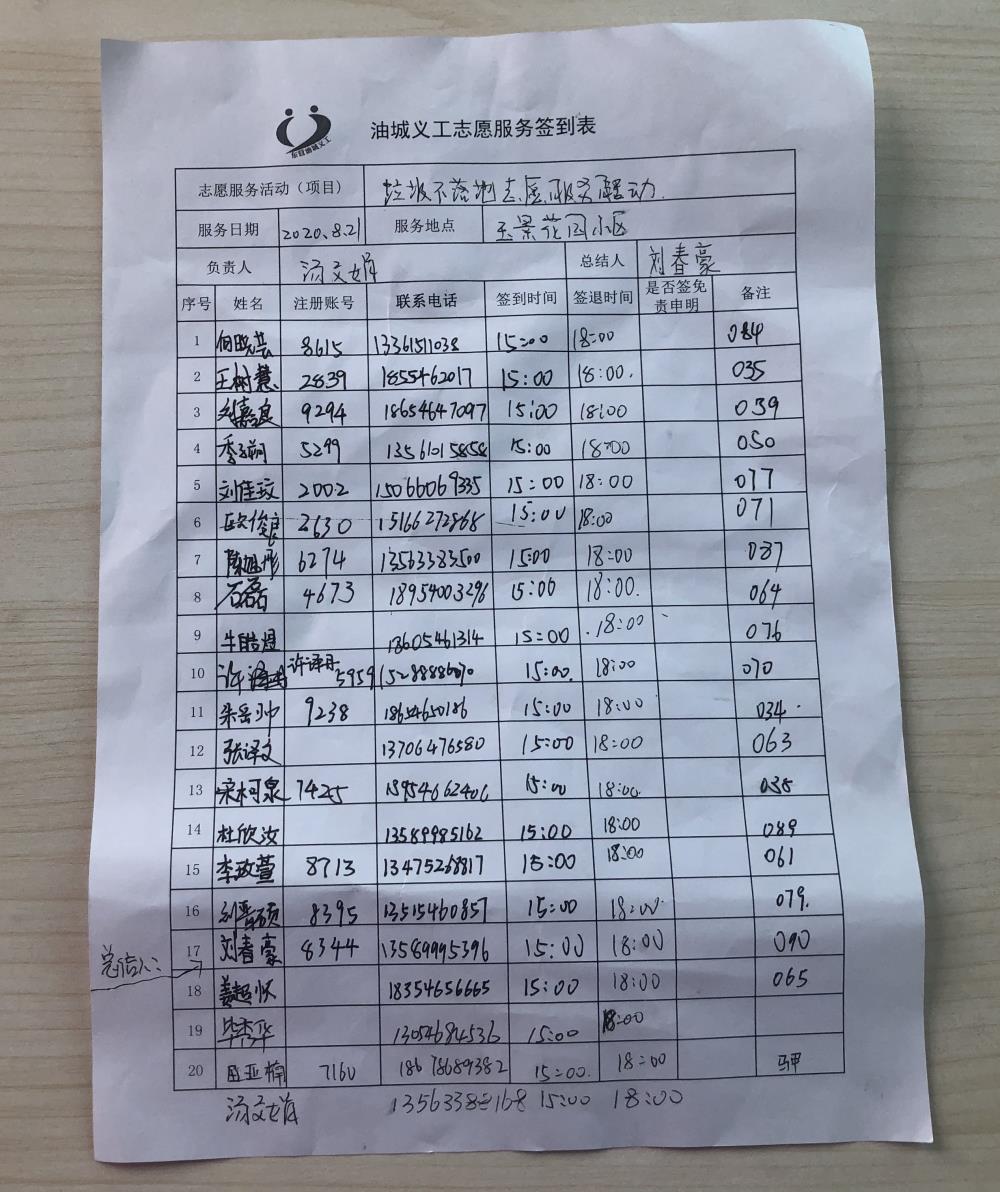 东营油城义工
油城义工志愿服务签到表
志愿服务活动（项目） 垃圾不落地志愿服务活动.
服务日期 2020.8.21 服务地点 玉景花园小区
负责人 汤文娟 总结人 刘春豪
序号 姓名 注册账号 联系电话 签到时间 签退时间 是否签免责申明 备注
1 8615 13361511038 15:00 18:00 084
2 王树慧 2839 1855462017 15:00 18:00. 035
3 刘嘉良 9294 18654647097 15:00 18:00 039
4 5299 13561015858 15:00 18:00 050
5 刘佳玟 2002 15066069335 15:00 18:00 077
6 2630 15166272868 15:00 18:00 071
7 6274 13563383500 15:00 18:00 087
8 石磊 4673 18954003296 15:00 18:00. 064
9 牛皓煜 18605461314 15:00 18:00 076
10 许译丹 5959 15288886070 15:00. 18:00 070
11 朱岳帅 9238 18654650186 15:00 18:00 034
12 张译文 13706476580 15:00 18:00 063
13 宋柯泉 7425 15:00 18:00.
14 杜欣汝 13589985162 15:00 18:00 089
15 李政萱 8713 13475268817 15:00 18:00 061
16 刘晋硕 8395 13515460857 15:00 18:00 079.
总结人: 17 刘春豪 8344 13589995396 15:00 18:00 090
18 姜超怀 18354656665 15:00 18:00 065
19 毕秀华 13054684536 15:00 18:00
20 7160 18678689382 15:00. 18:00 马甲
汤文娟 15:00 18:00